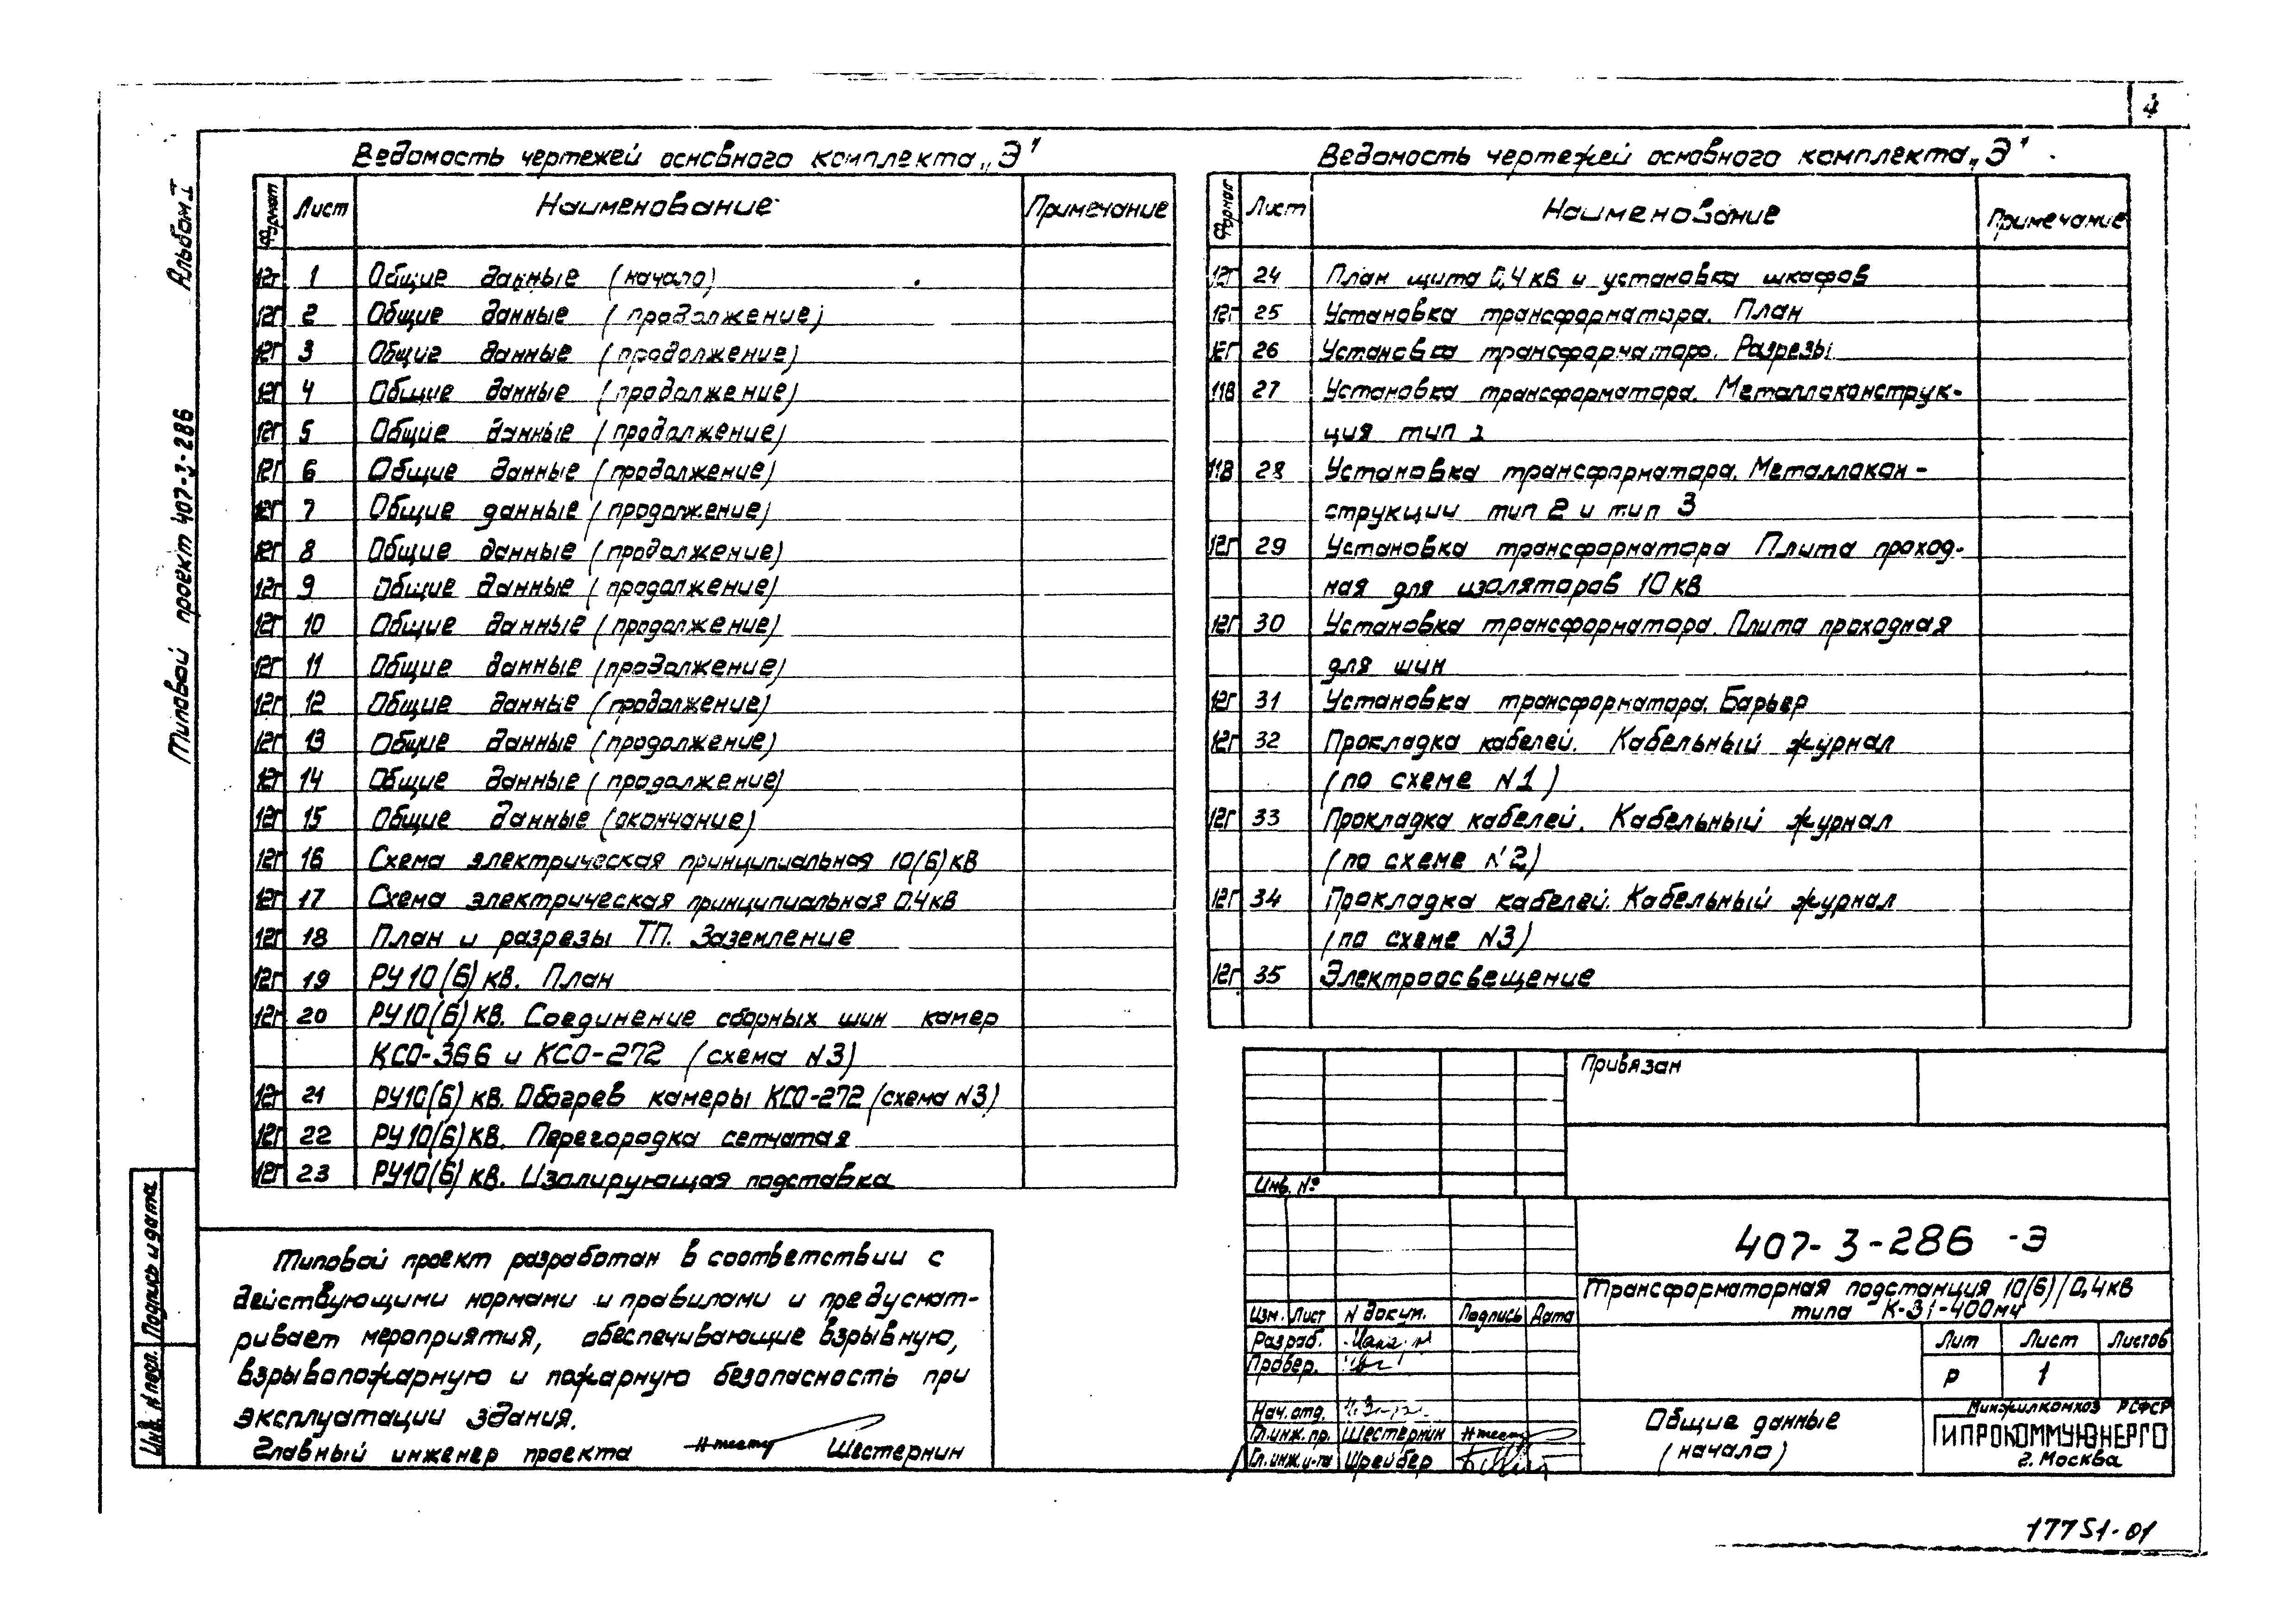 4
Альбом I
Типовой проект 407-3-286
Ведомость чертежей основного комплекта „Э"
Формат Лист Наименование Примечание
12г 1 Общие данные (начало)
12г 2 Общие данные (продолжение)
12г 3 Общие данные (продолжение)
12г 4 Общие данные (продолжение)
12г 5 Общие данные (продолжение)
12г 6 Общие данные (продолжение)
12г 7 Общие данные (продолжение)
12г 8 Общие данные (продолжение)
12г 9 Общие данные (продолжение)
12г 10 Общие данные (продолжение)
12г 11 Общие данные (продолжение)
12г 12 Общие данные (продолжение)
12г 13 Общие данные (продолжение)
12г 14 Общие данные (продолжение)
12г 15 Общие данные (окончание)
12г 16 Схема электрическая принципиальная 10(6) кв
12г 17 Схема электрическая принципиальная 0,4 кв
12г 18 План и разрезы ТП. Заземление
12г 19 РУ 10(6) кв. План
12г 20 РУ10(6) кв. Соединение сборных шин камер
КСО-366 и КСО-272 (схема N3)
12г 21 РУ10(6) кв. Обогрев камеры КСО-272 (схема N3)
12г 22 РУ10(6) кв. Перегородка сетчатая
12г 23 РУ10(6) кв. Изолирующая подставка
Ведомость чертежей основного комплекта „Э"
Формат Лист Наименование Примечание
12г 24 План щита 0,4 кв и установка шкафов
12г 25 Установка трансформатора. План
12г 26 Установка трансформатора. Разрезы
11в 27 Установка трансформатора. Металлоконструк-
ция тип 1
11в 28 Установка трансформатора. Металлокон-
струкции тип 2 и тип 3
12г 29 Установка трансформатора Плита проход-
ная для изоляторов 10 кв
12г 30 Установка трансформатора. Плита проходная
для шин
12г 31 Установка трансформатора. Барьер
12г 32 Прокладка кабелей. Кабельный журнал
(по схеме N1)
12г 33 Прокладка кабелей. Кабельный журнал
(по схеме N2)
12г 34 Прокладка кабелей. Кабельный журнал
(по схеме N3)
12г 35 Электроосвещение
Типовой проект разработан в соответствии с
действующими нормами и правилами и предусмат-
ривает мероприятия, обеспечивающие взрывную,
взрывопожарную и пожарную безопасность при
эксплуатации здания.
Главный инженер проекта Шестернин
Подпись и дата
Инв. N подл.
Привязан
Инв. №
407-3-286 -Э
Трансформаторная подстанция 10(6)/0,4кв
типа К-31-400м4
Изм. Лист N докум. Подпись Дата
Разраб.
Провер.
Нач. отд.
Гл. инж. пр. Шестернин
Гл. инж. и-та Шрейбер
Лит Лист Листов
Р 1
Общие данные
(начало)
Минжилкомхоз РСФСР
ГИПРОКОММУНЭНЕРГО
г. Москва
17751-01